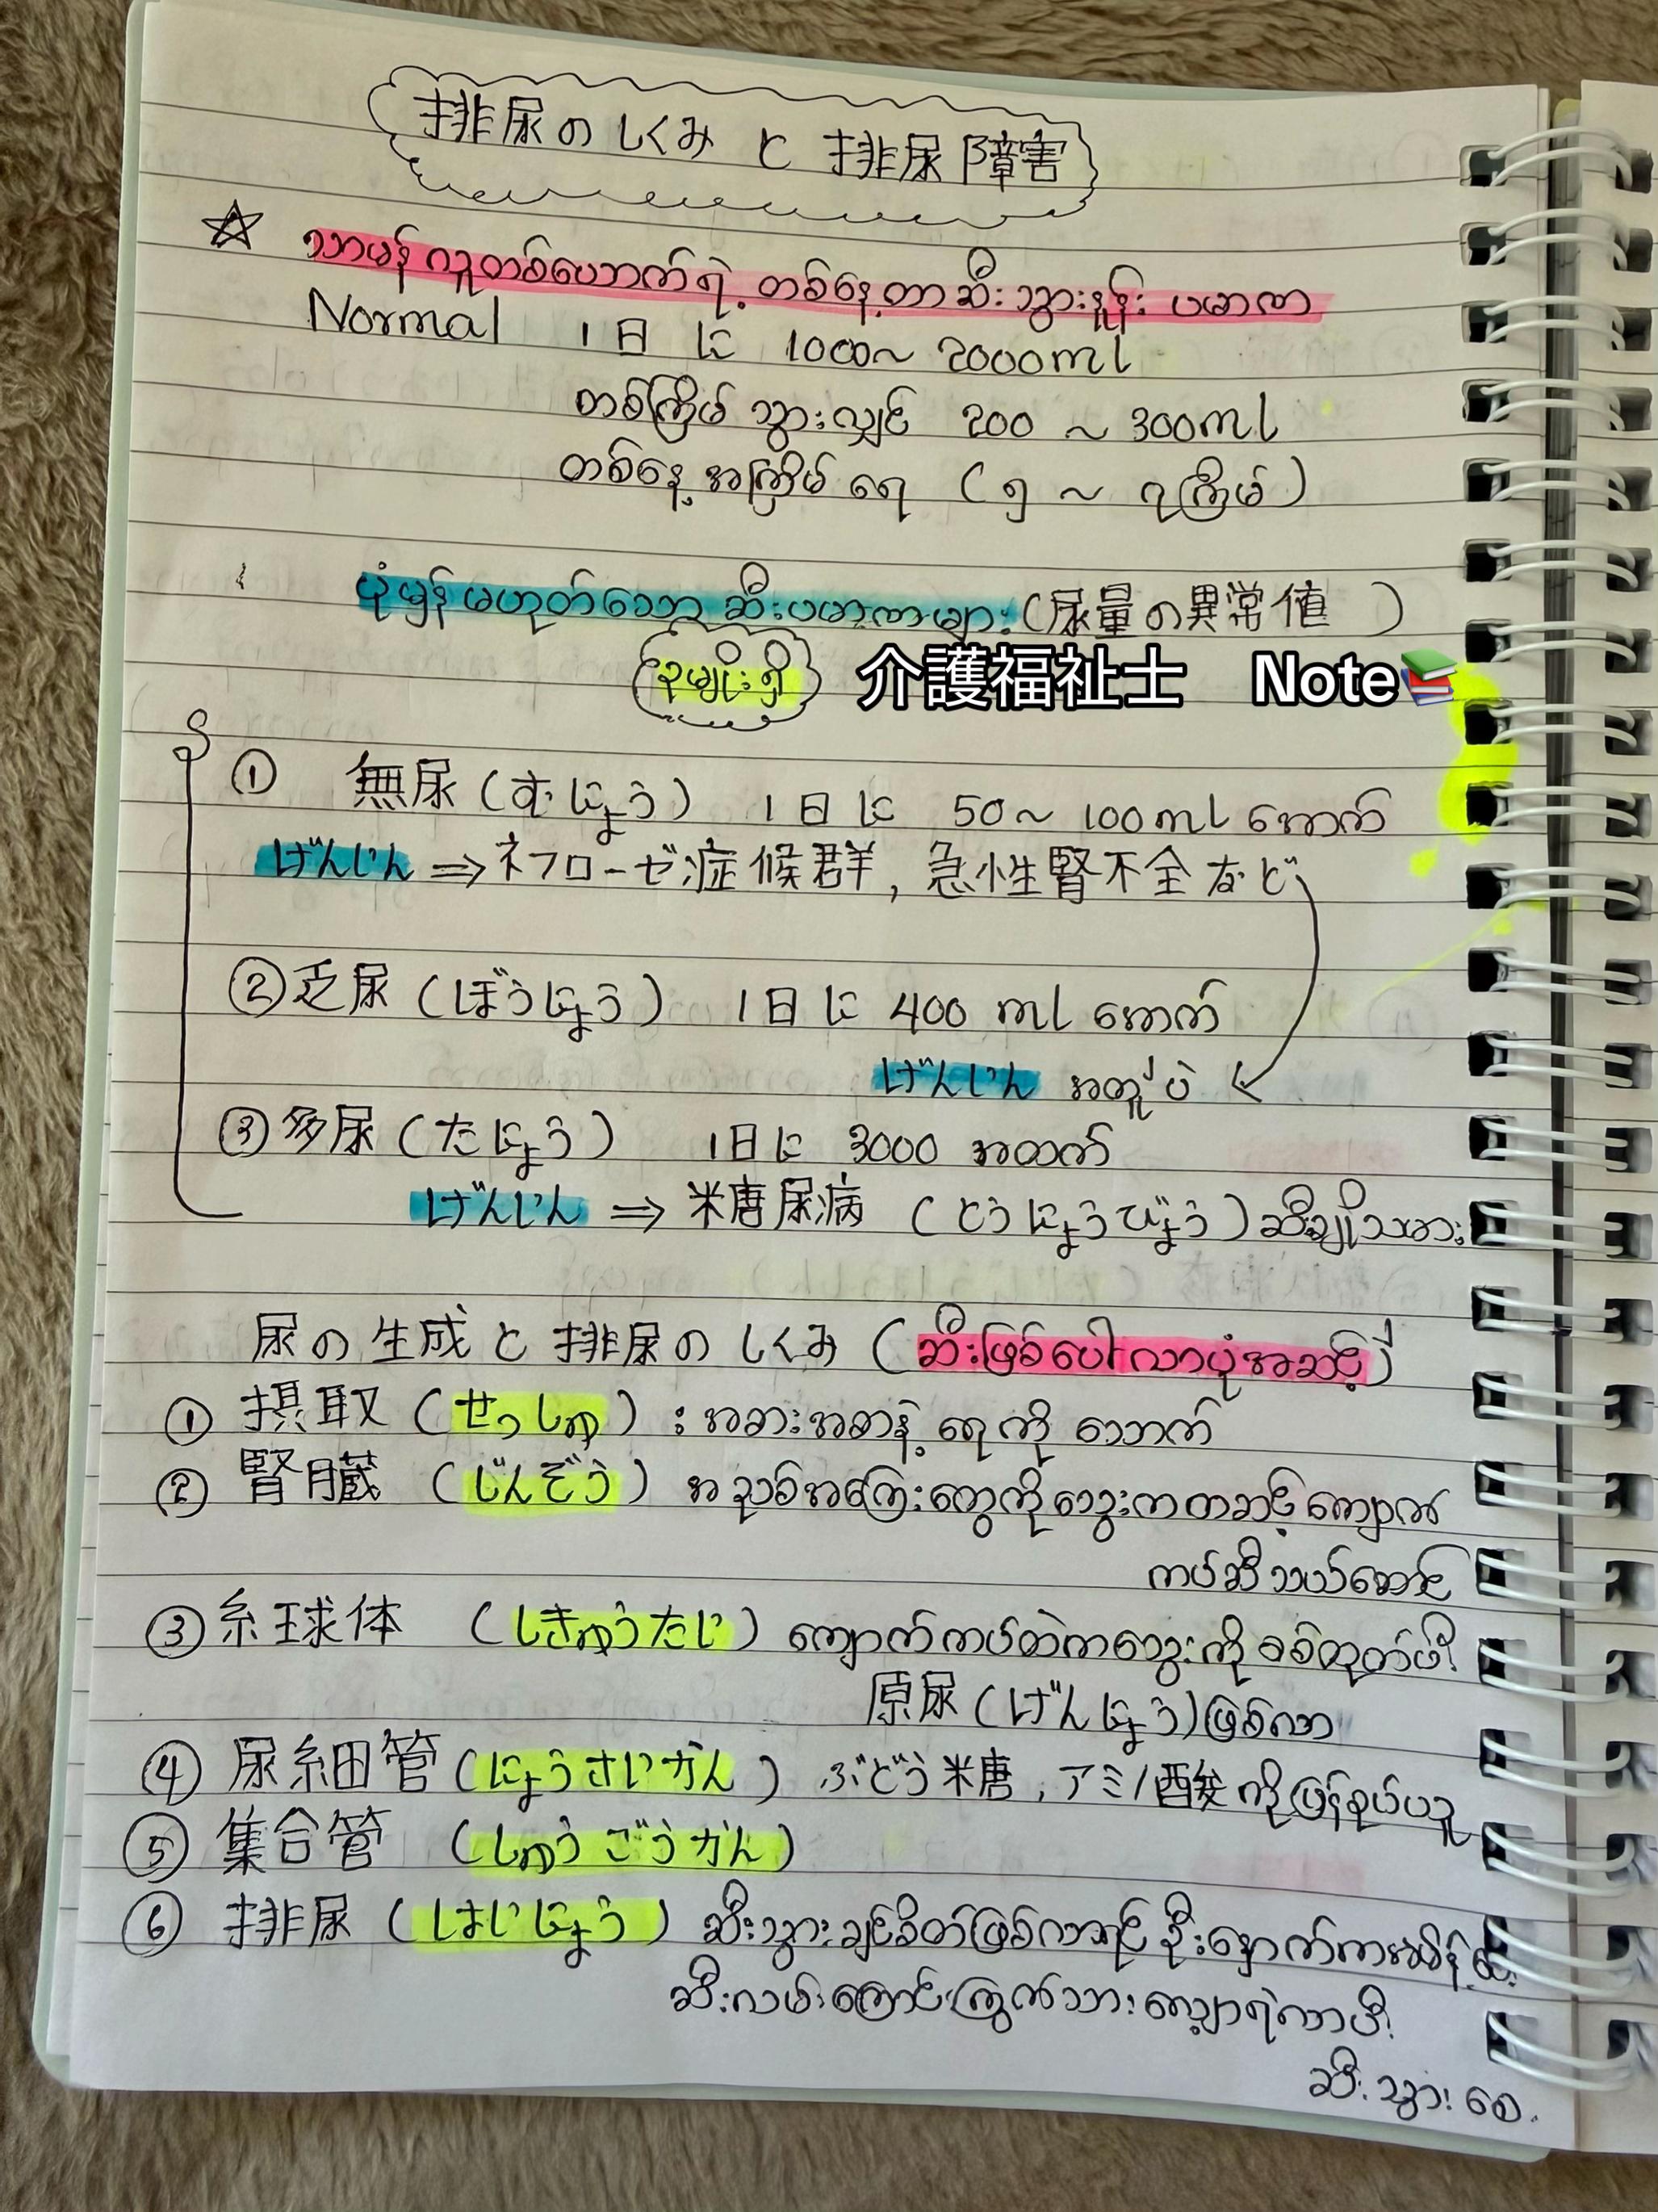 排尿のしくみ と 排尿障害
☆ သာမန် လူတစ်ယောက်ရဲ့ တစ်နေ့တာ ဆီးသွားနှုန်း ပမာဏ
Normal 1日 に 1000~ 2000ml
တစ်ကြိမ် သွားလျှင် 200 ~ 300ml
တစ်နေ့ အကြိမ် ရေ (၅ ~ ၇ကြိမ်)
ပုံမှန် မဟုတ်သော ဆီးပမာဏများ (尿量の異常値 )
၃မျိုးရှိ
介護福祉士 Note📚
① 無尿 (むにょう) 1日に 50~ 100ml အောက်
げんいん ⇒ ネフローゼ症候群, 急性腎不全など
②乏尿 (ぼうにょう) 1日に 400 ml အောက်
げんいん အတူပဲ
③多尿 (たにょう) 1日に 3000 အထက်
げんいん ⇒ 糖尿病 (とうにょうびょう) ဆီးချိုသမား
尿の生成と排尿のしくみ (ဆီးဖြစ်ပေါ်လာပုံအဆင့်)
① 摂取 (せっしゅ) : အစားအစာနဲ့ ရေကို သောက်
② 腎臓 (じんぞう) အညစ်အကြေးတွေကို သွေးကတဆင့် ကျောက်
ကပ်ဆီ သယ်ဆောင်
③ 糸球体 (しきゅうたい) ကျောက်ကပ်ထဲက သွေးကို စစ်ထုတ်ပြီး
原尿 (げんにょう) ဖြစ်လာ
④ 尿細管 (にょうさいかん) ぶどう糖, アミノ酸 ကို ပြန်စုပ်ယူ
⑤ 集合管 (しゅうごうかん)
⑥ 排尿 (はいにょう) ဆီးသွားချင်စိတ်ဖြစ်လာရင် ဦးနှောက်ကအမိန့်
ဆီးလမ်းကြောင်း ကြွက်သား လျော့ရဲလာပြီး
ဆီး သွား စေ.